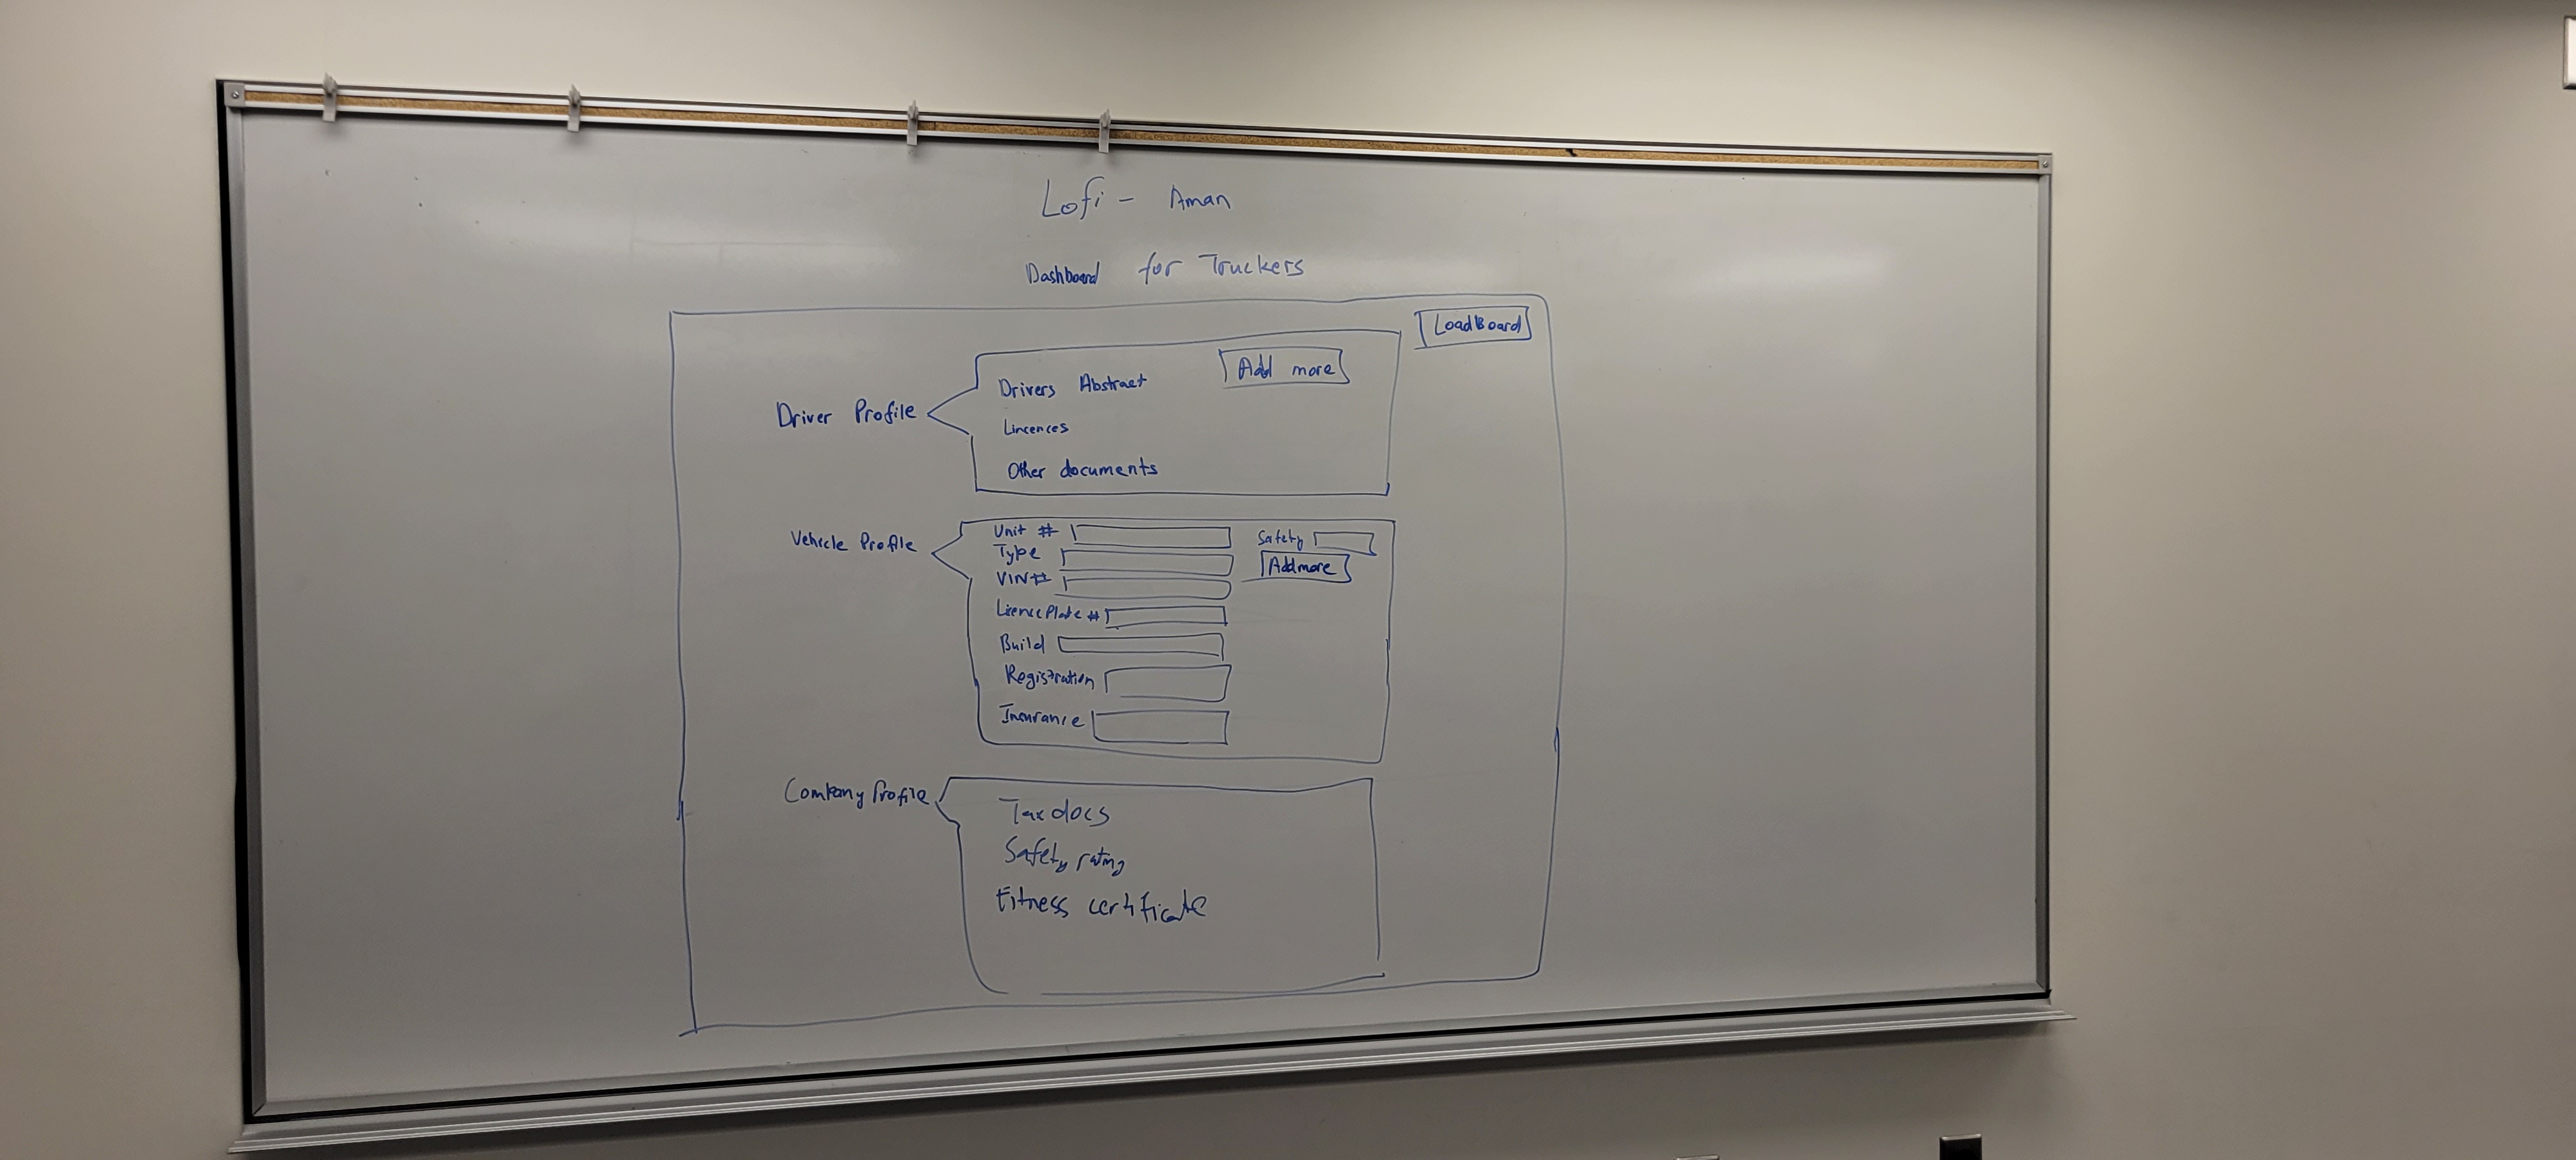 Lofi - Aman
Dashboard for Truckers
LoadBoard
Driver Profile
Drivers Abstract
Add more
Lincences
Other documents
Vehicle Profile
Unit #
Safety
Type
Add more
VIN#
Licence Plate #
Build
Registration
Insurance
Company Profile
Tax docs
Safety rating
Fitness certificate